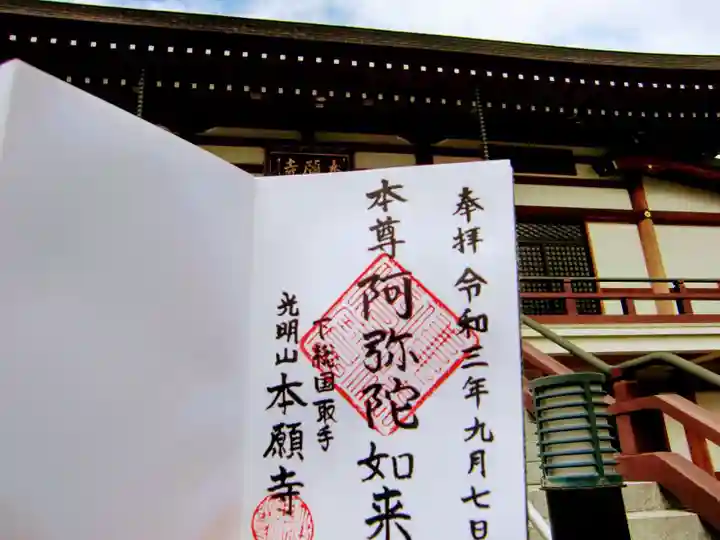 奉拝 令和三年九月七日
本尊 阿弥陀如来
下総国取手
光明山 本願寺
本願寺